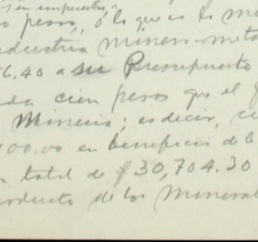 en impuestos",
peso", ó lo que es lo m
ndustria minero-meta
6,40 a su Presupuesto
da cien pesos que el
Minería; es decir, ci
00.00 en beneficio de l
n total de $30,704.30
roducto de los mineral